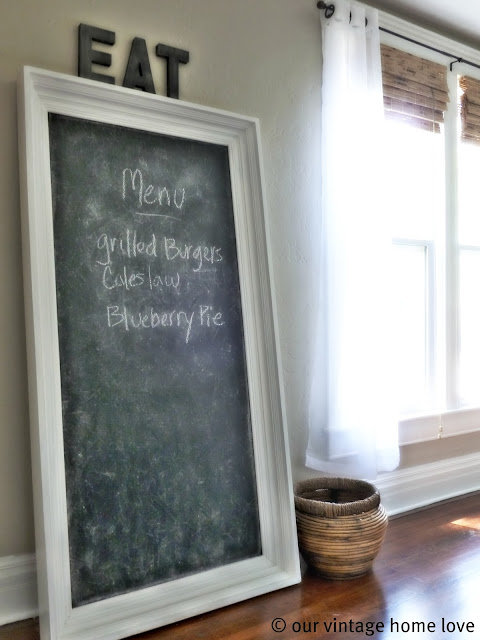 EAT
Menu
grilled Burgers
Coleslaw
Blueberry Pie
© our vintage home love